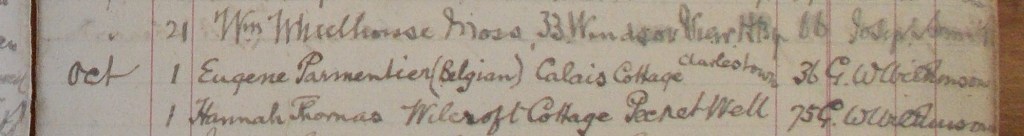 21 Wm Wheelhouse Moss, 33 Windsor View HBge 66 Joseph Smith
Oct 1 Eugene Parmentier (Belgian) Calais Cottage Charlestown 36 G. W Wilkinson
1 Hannah Thomas Wilcroft Cottage Pecket Well 75 G. W Wilkinson